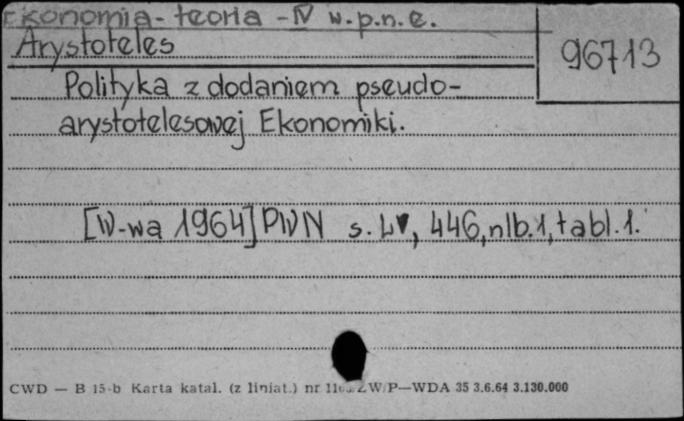 Ekonomia - teoria - IV w.p.n.e.
Arystoteles
96713
Polityka z dodaniem pseudo-
arystotelesowej Ekonomiki.
[W-wa 1964] PWN s. LV, 446, nlb.1, tabl.1.
CWD — B 15-b Karta katal. (z liniat.) nr ZW/P—WDA 35 3.6.64 3.130.000